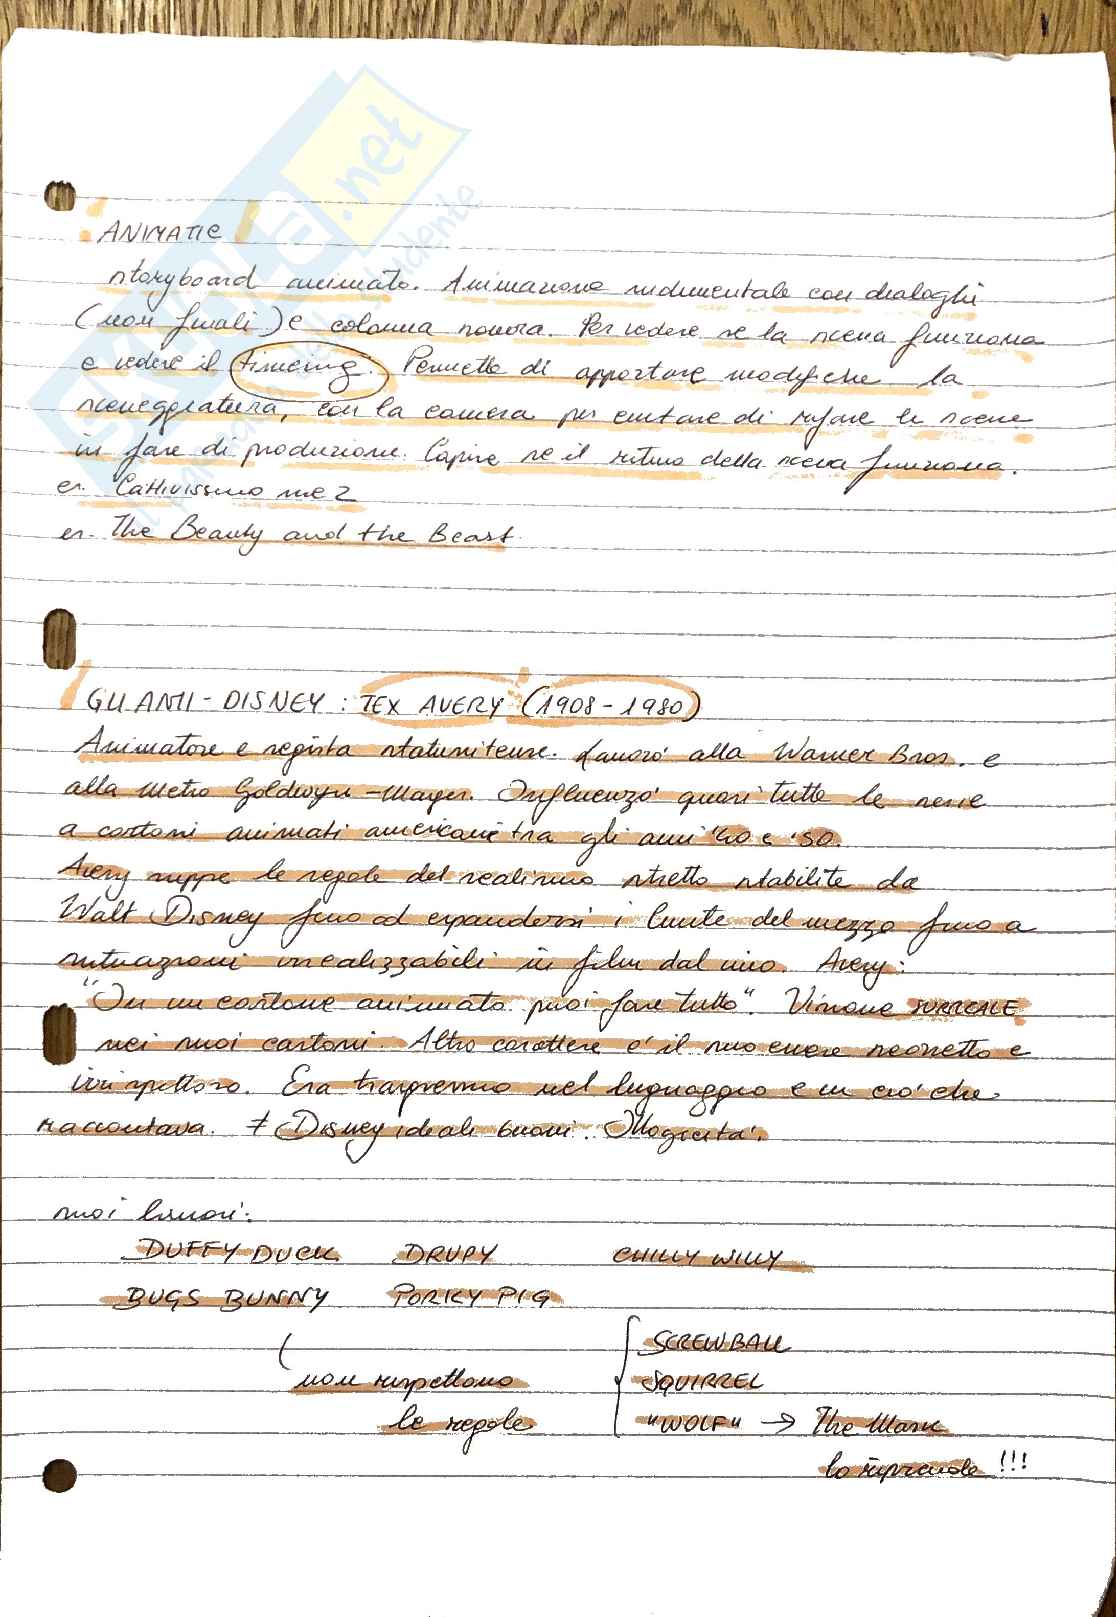 SKUOLA.net
ANIMATIC
storyboard animato. Animazione rudimentale con dialoghi
(non finali) e colonna sonora. Per vedere se la scena funziona
e vedere il timeing. Permette di apportare modifiche la
sceneggiatura, con la camera per evitare di rifare le scene
in fase di produzione. Capire se il ritmo della scena funziona.
es. Cattivissimo me 2
es. The Beauty and the Beast.
GLI ANTI-DISNEY: TEX AVERY (1908-1980)
Animatore e regista statunitense. Lavorò alla Warner Bros. e
alla Metro Goldwyn-Mayer. Influenzò quasi tutte le serie
a cartoni animati americane tra gli anni '40 e '50.
Avery ruppe le regole del realismo stretto stabilite da
Walt Disney fino ad espandersi i limite del mezzo fino a
situazioni irrealizzabili in film dal vivo. Avery:
"In un cartone animato puoi fare tutto". Visione SURREALE
nei suoi cartoni. Altro carattere è il suo essere scorretto e
irrispettoso. Era trasgressivo nel linguaggio e in ciò che
raccontava. ≠ Disney ideali buoni. Illogicità.
suoi lavori:
DUFFY DUCK DRUPY CHILLY WILLY
BUGS BUNNY PORKY PIG
SCREWBALL
non rispettano SQUIRREL
le regole "WOLF" → The Mask
lo riprende !!!